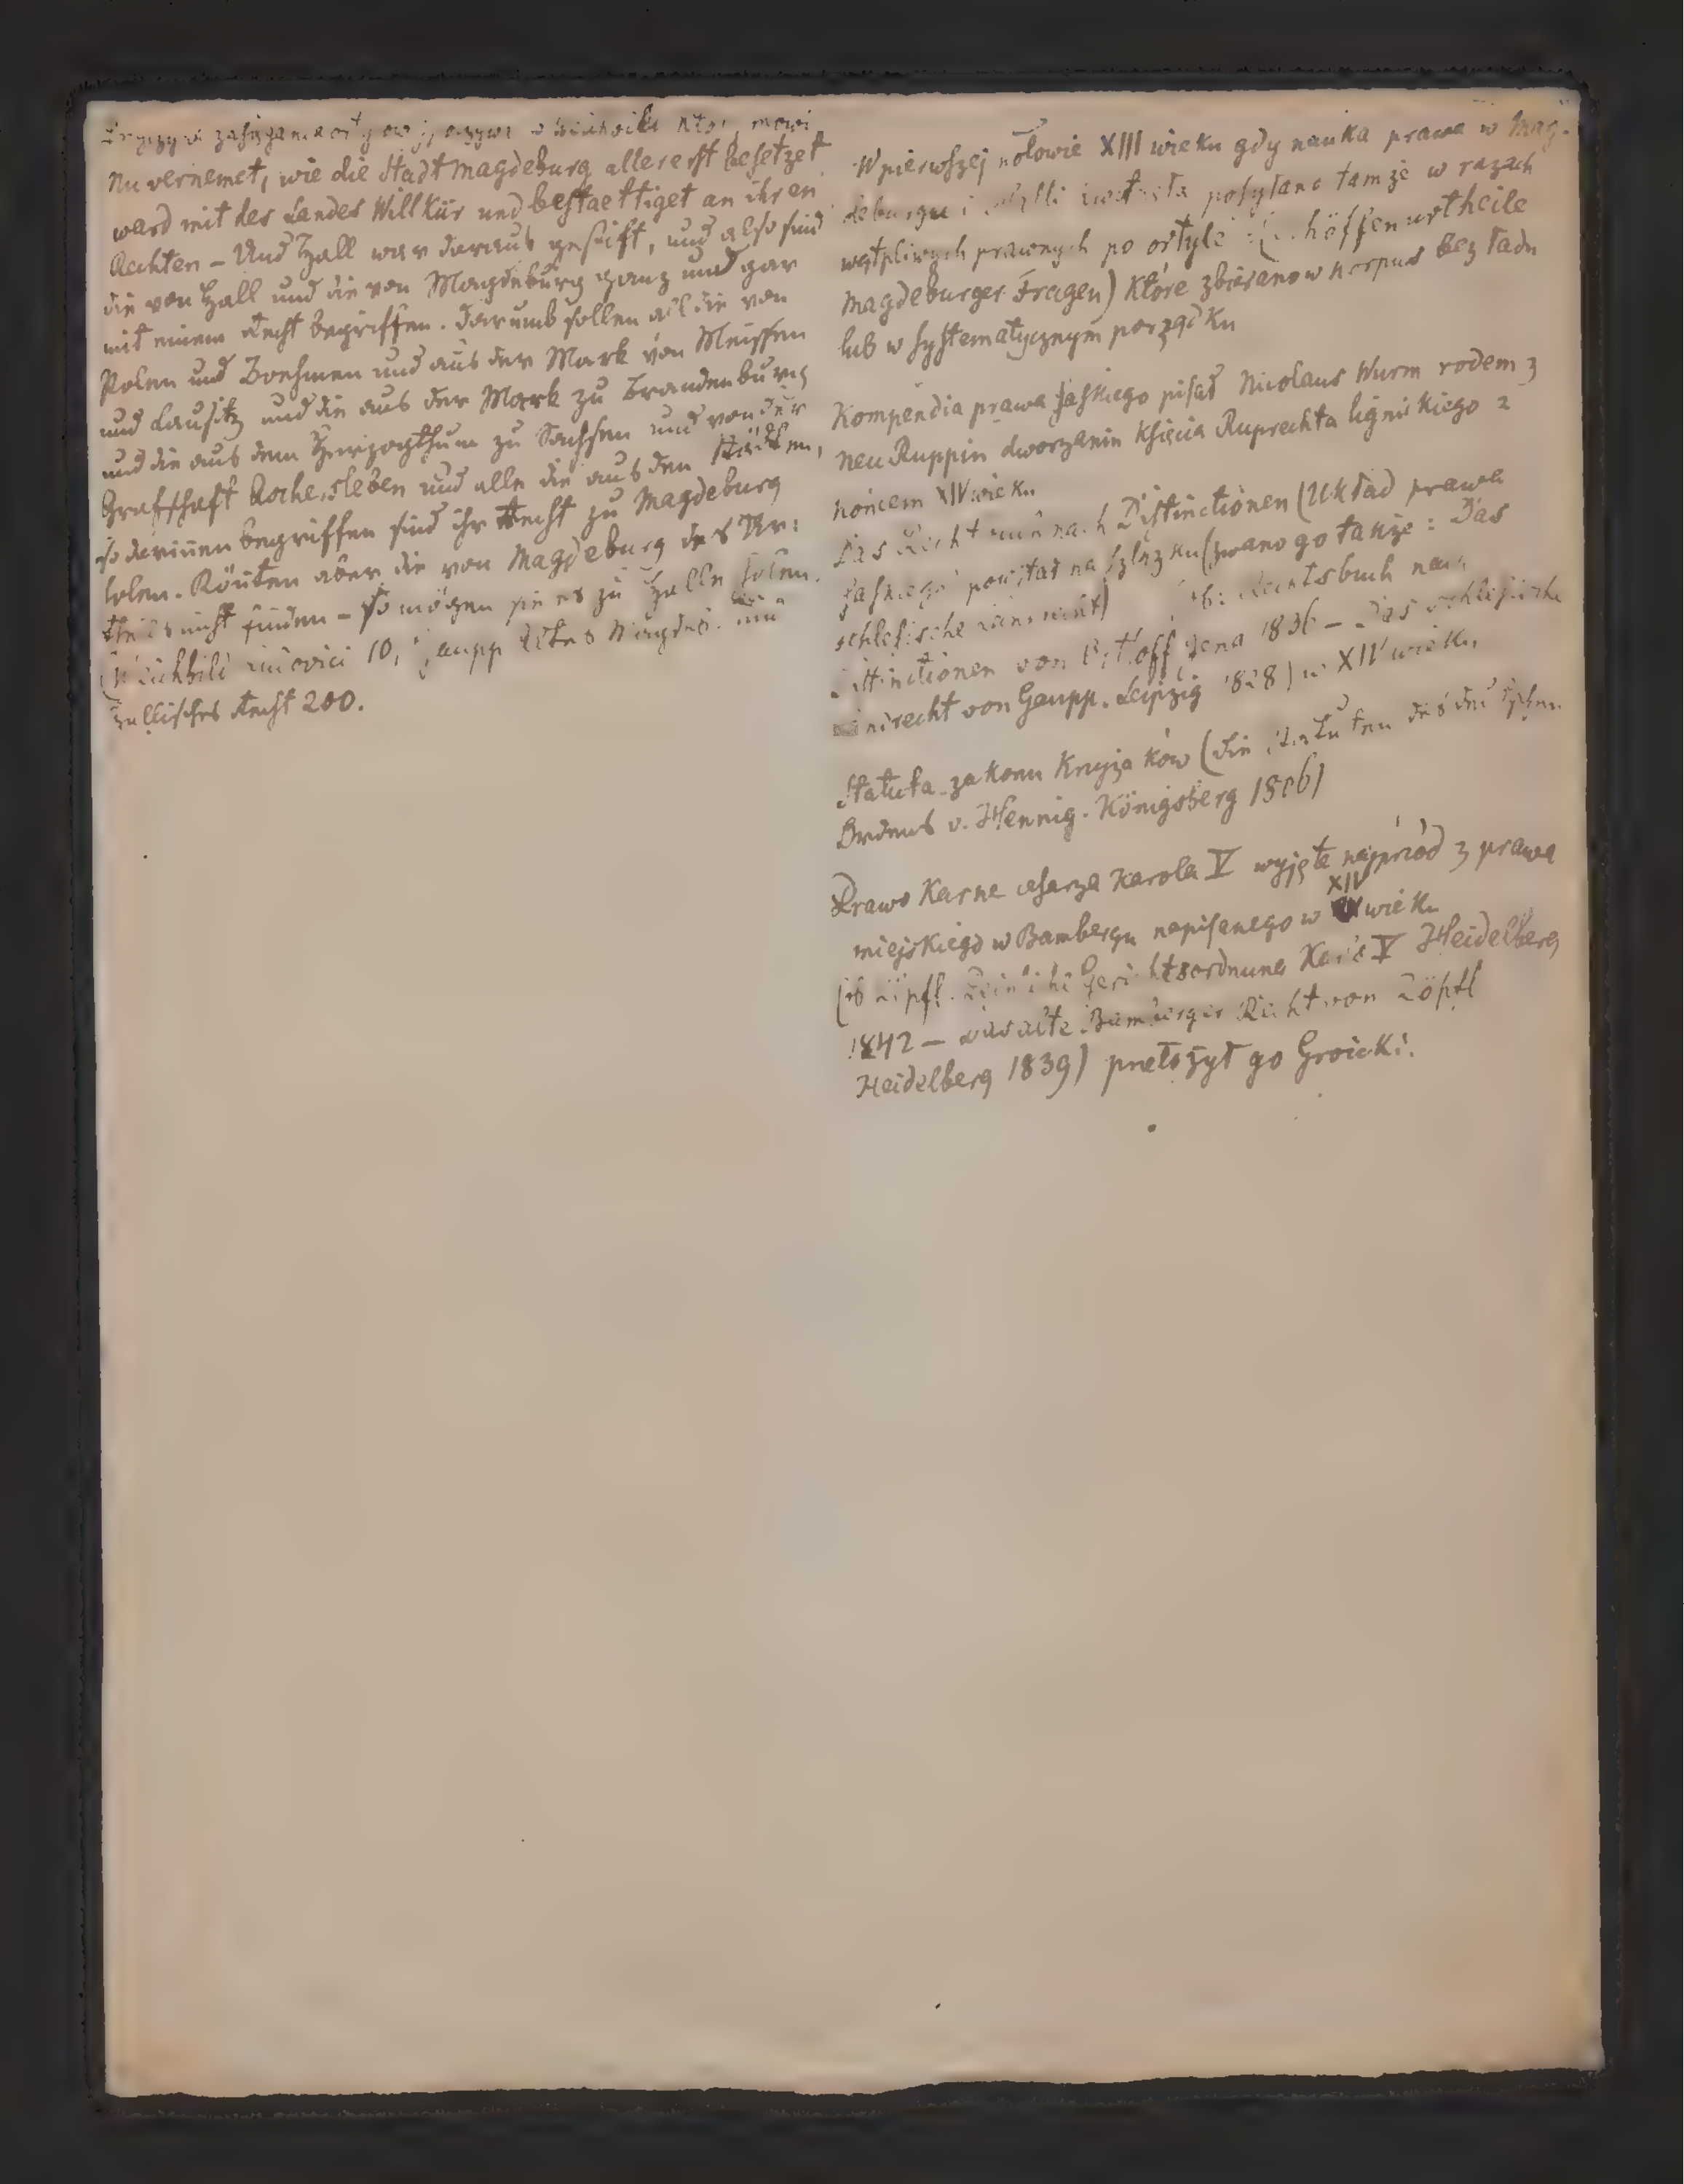 mowi
Nu vernemet, wie die Stadt Magdeburg allererst besetzet
ward mit des Landes Willkür und bestaettiget an ihren
Rechten – Und Hall war daraus gestift, und also sind
die von Hall und die von Magdeburg ganz und gar
mit einem Recht begriffen. Darumb sollen all die von
Polen und Boehmen und aus der Mark von Meissen
und Lausitz und die aus der Mark zu Brandenburg
und die aus dem Herzogthum zu Sachsen und von der
Grafschaft Aschersleben und alle die aus den Städten,
so darinnen begriffen sind ihr Recht zu Magdeburg
holen. Könten aber die von Magdeburg des Ur:
theils nicht finden – so mögen sie es zu Halle holen.
10, Gaupp und
Hallisches Recht 200.
W pierwszej połowie XIII wieku gdy nauka prawa w Mag-
deburgu i posyłano tamże w razach
wątpliwych prawnych po ortyle (Schöffenurtheile
Magdeburger Fragen) Które zbierano w Korpus bez ładu
lub w systematycznym porządku
Kompendia prawa saskiego pisał Nicolaus Wurm rodem z
Neu Ruppin dworzanin Księcia Ruprechta lignickiego z
końcem XIV wieku
Das Recht nach Distinctionen (Układ prawa
saskiego powstał na Szląsku (zwano go także: Das
schlesische Landrecht) Rechtsbuch nach
Distinctionen von Ortloff Jena 1836 – Das schlesische
Landrecht von Gaupp. Leipzig 1828) w XIV wieku
Statuta zakonu Krzyżaków (Die Statuten des deutschen
Ordens v. Hennig. Königsberg 1806)
Prawo Karne cesarza Karola V wyjęte najprzód z prawa
miejskiego w Bambergu napisanego w XIV wieku
(ob Zöpfl. Peinliche Gerichtsordnung Karls V Heidelberg
1842 – Das alte Bamberger Recht von Zöpfl
Heidelberg 1839) przełożył go Groicki.